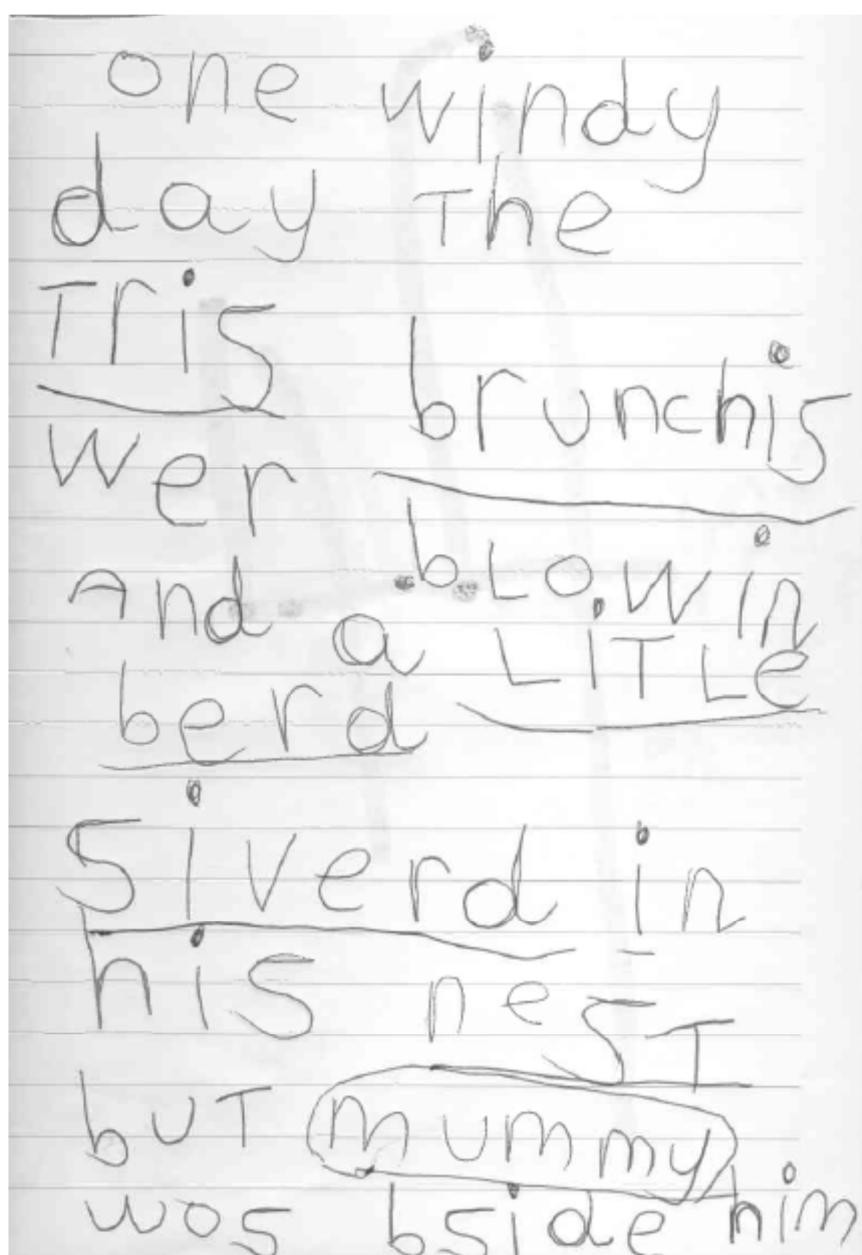 one windy
day The
Tris brunchis
wer blowin
And a LiTLe
berd
siverd in
his nesT
buT mummy
wos bside him